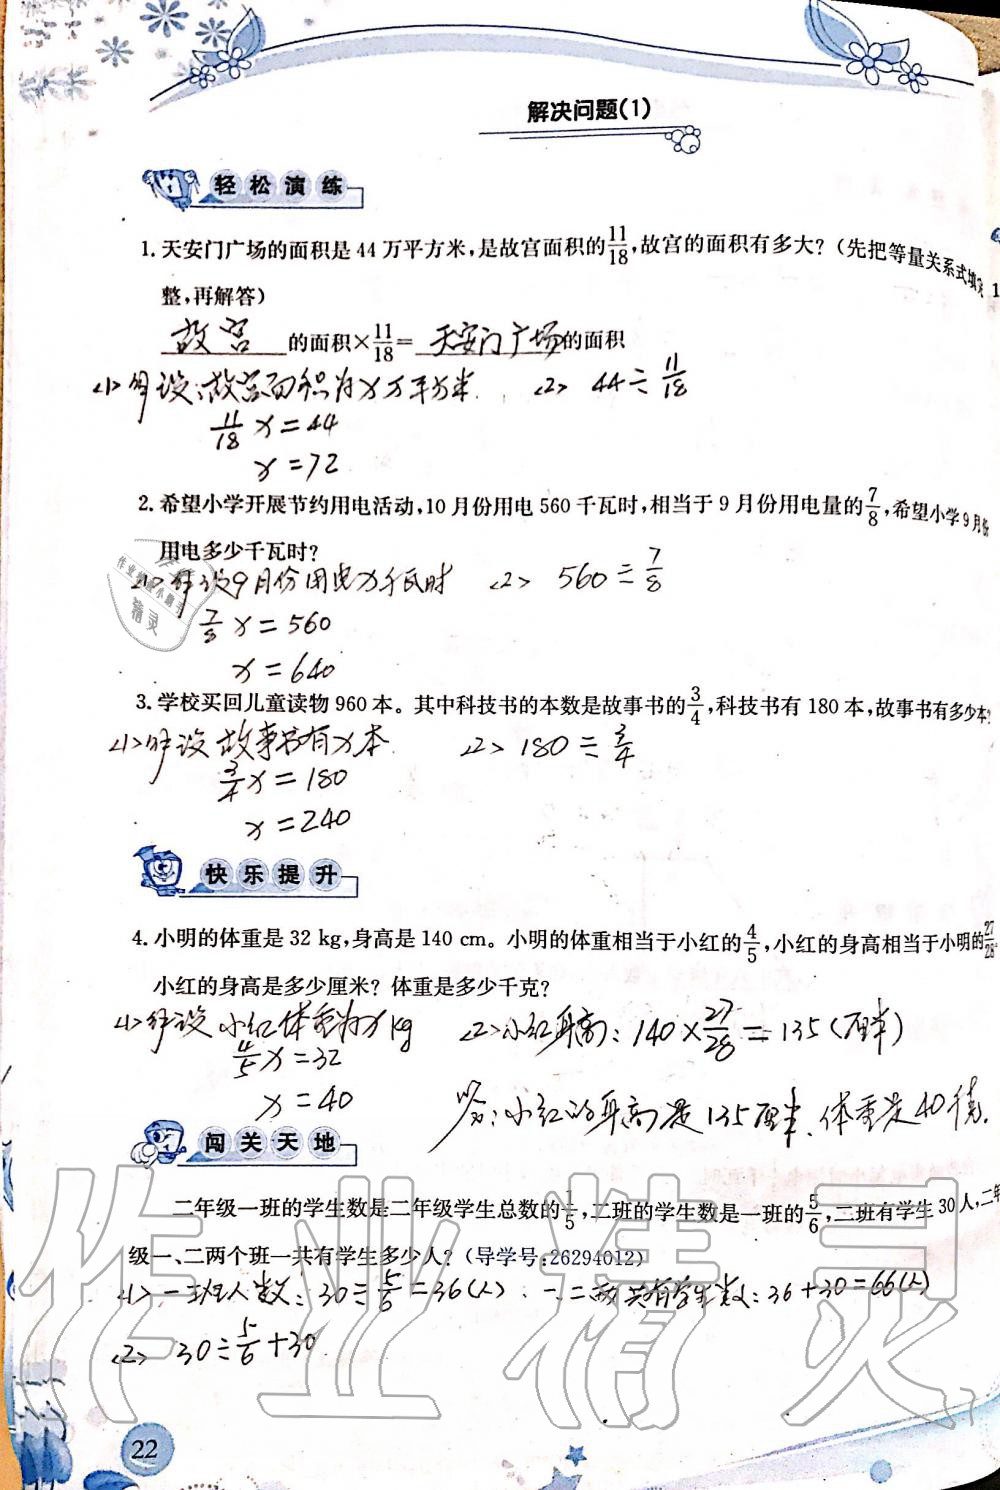 解决问题(1)
轻松演练
1. 天安门广场的面积是 44 万平方米,是故宫面积的11/18,故宫的面积有多大?(先把等量关系式填完
整,再解答)
故宫的面积×11/18=天安门广场的面积
<1> 解设:故宫面积为x万平方米. <2> 44÷11/18
11/18 x=44
x=72
2. 希望小学开展节约用电活动,10 月份用电 560 千瓦时,相当于 9 月份用电量的7/8,希望小学9月份
用电多少千瓦时?
<1> 解设9月份用电x千瓦时 <2> 560÷7/8
7/8 x=560
x=640
3. 学校买回儿童读物 960 本。其中科技书的本数是故事书的3/4,科技书有 180 本,故事书有多少本?
<1> 解设故事书有x本 <2> 180÷3/4
3/4 x=180
x=240
快乐提升
4. 小明的体重是 32 kg,身高是 140 cm。小明的体重相当于小红的4/5,小红的身高相当于小明的27/28。
小红的身高是多少厘米? 体重是多少千克?
<1> 解设小红体重为x kg <2> 小红身高:140×27/28=135(厘米)
4/5 x=32
x=40
答:小红的身高是135厘米,体重是40千克.
闯关天地
二年级一班的学生数是二年级学生总数的1/5,二班的学生数是一班的5/6,二班有学生30人,二年
级一、二两个班一共有学生多少人?(导学号:26294012)
<1> 一班人数:30÷5/6=36(人). 一二两共有学生数:36+30=66(人)
<2> 30÷5/6+30
22
作业精灵